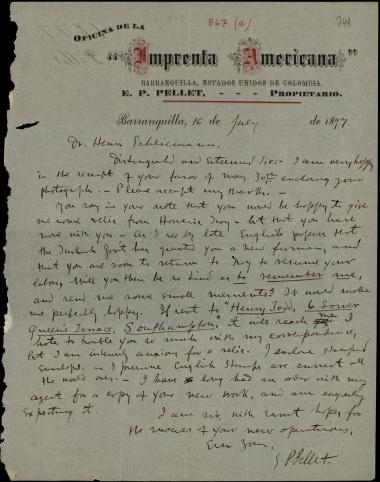 867 (a)
741
OFICINA DE LA
"Imprenta Americana"
BARRANQUILLA, ESTADOS UNIDOS DE COLOMBIA.
E. P. PELLET, - - - PROPIETARIO.
Barranquilla, 16 de July de 1877.
Dr. Henri Schliemann.
Distinguished and Esteemed Sir:- I am very happy
in the receipt of your favor of May 30th enclosing your
photograph. - Please accept my thanks. -
You say in your note that you would be happy to give
me some relic from Homeric Troy - but that you have
none with you - As I see by late English papers that
the Turkish Govt has granted you a new firman, and
that you are soon to return to Troy to resume your
labors, will you then be so kind as to remember me,
and send me some small memento? It would make
me perfectly happy. If sent to "Henry Todd, 6 Lower
Queen's Terrace, Southampton, it will reach me I
hate to trouble you so much with my correspondence,
but I am anxious for a relic. I enclose stamped
envelope, as I presume English stamps are current all
the world over. - I have long had an order with my
agent for a copy of your new work, and am eagerly
expecting it.
I am sir, with earnest hopes for
the success of your new operations,
Ever Yours,
E P Pellet.